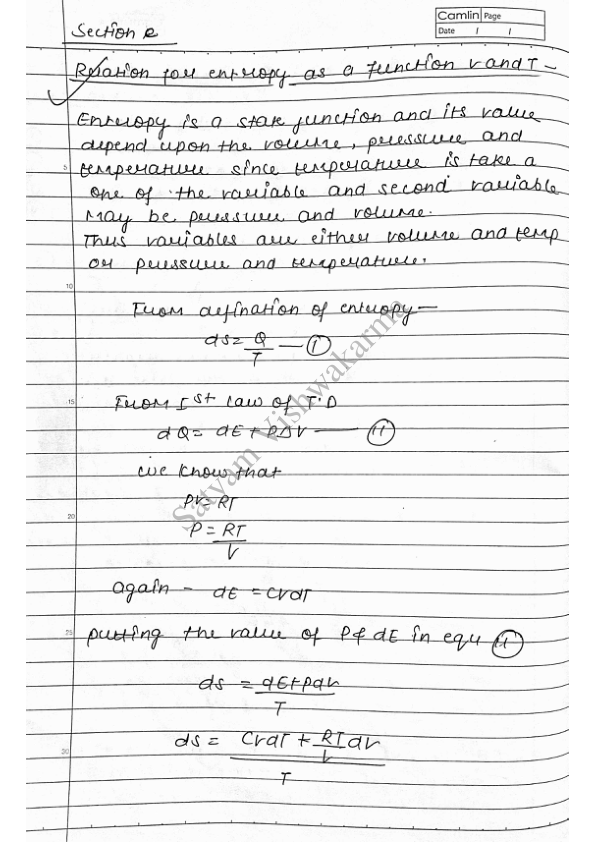 Camlin Page
Date / /
Section R
Relation for entropy as a function V and T -
Entropy is a state function and its value
depend upon the volume, pressure and
5
temperature since temperature is take a
one of the variable and second variable
may be pressure and volume.
Thus variables are either volume and temp
or pressure and temperature.
10
From defination of entropy —
ds = Q/T — (i)
15
From Ist law of T.D
dQ = dE + PΔV — (ii)
we know that
PV = RT
20
P = RT/V
again - dE = CvdT
25
putting the value of P & dE in equ (ii)
ds = dE+PdV/T
ds = CvdT + RT/V dV/T
30
Satyam Vishwakarma